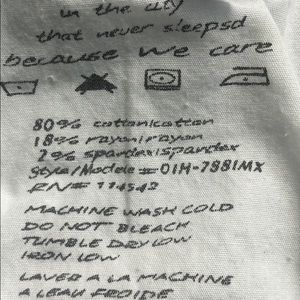 in the city
that never sleepsd
because we care
80% cotton/coton
18% rayon/rayon
2% spandex/spandex
Style/Modele # 01M-7881MX
RN# 114542
MACHINE WASH COLD
DO NOT BLEACH
TUMBLE DRY LOW
IRON LOW
LAVER A LA MACHINE
A LEAU FROIDE